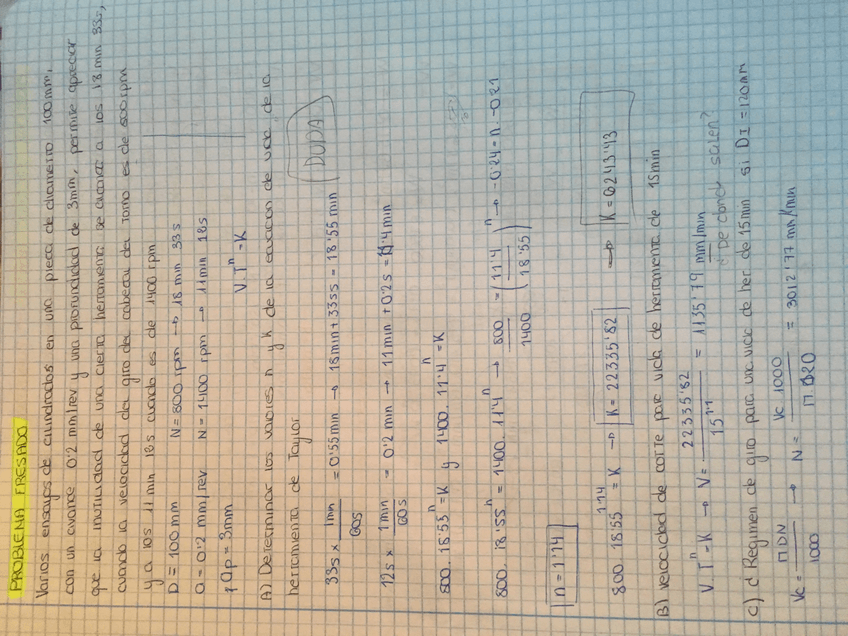 PROBLEMA FRESADO
Varios ensayos de cilindrados en una pieza de diametro 100mm,
con un avance 0'2 mm/rev y una profundidad de 3mm, permite apreciar
que la inutilidad de una cierta herramienta se a los 18 min 33s,
cuando la velocidad del giro del cabezal del torno es de 800 rpm
y a los 11 min 18s cuando es de 1400 rpm
D = 100 mm N = 800 rpm → 18 min 33s
a = 0'2 mm/rev N = 1400 rpm → 11 min 18s
ap = 3mm V.Tⁿ = K
A) Determinar los valores n y K de la ecuacion de vida de la
herramienta de Taylor
DUDA
33s x 1min/60s = 0'55 min → 18min + 33ss = 18'55 min
12s x 1min/60s = 0'2 min → 11min + 0'2s = 11'4 min
800. 18'55ⁿ = K y 1400. 11'4ⁿ = K
800. 18'55ⁿ = 1400. 11'4ⁿ → 800/1400 = (11'4/18'55)ⁿ → -0'24 = n. -0'21
n = 1'14
800 18'55^1'14 = K → K = 22335'82 → K = 6243'43
B) velocidad de corte para vida de herramienta de 15min
V.Tⁿ = K → V = 22335'82/15^1'14 = 1135'79 mm/min
¿De donde salen?
C) d Regimen de giro para una vida de her de 15min si DI = 120mm
Vc = π D N/1000 → N = Vc 1000/π. 120 = 3012'77 mm/min